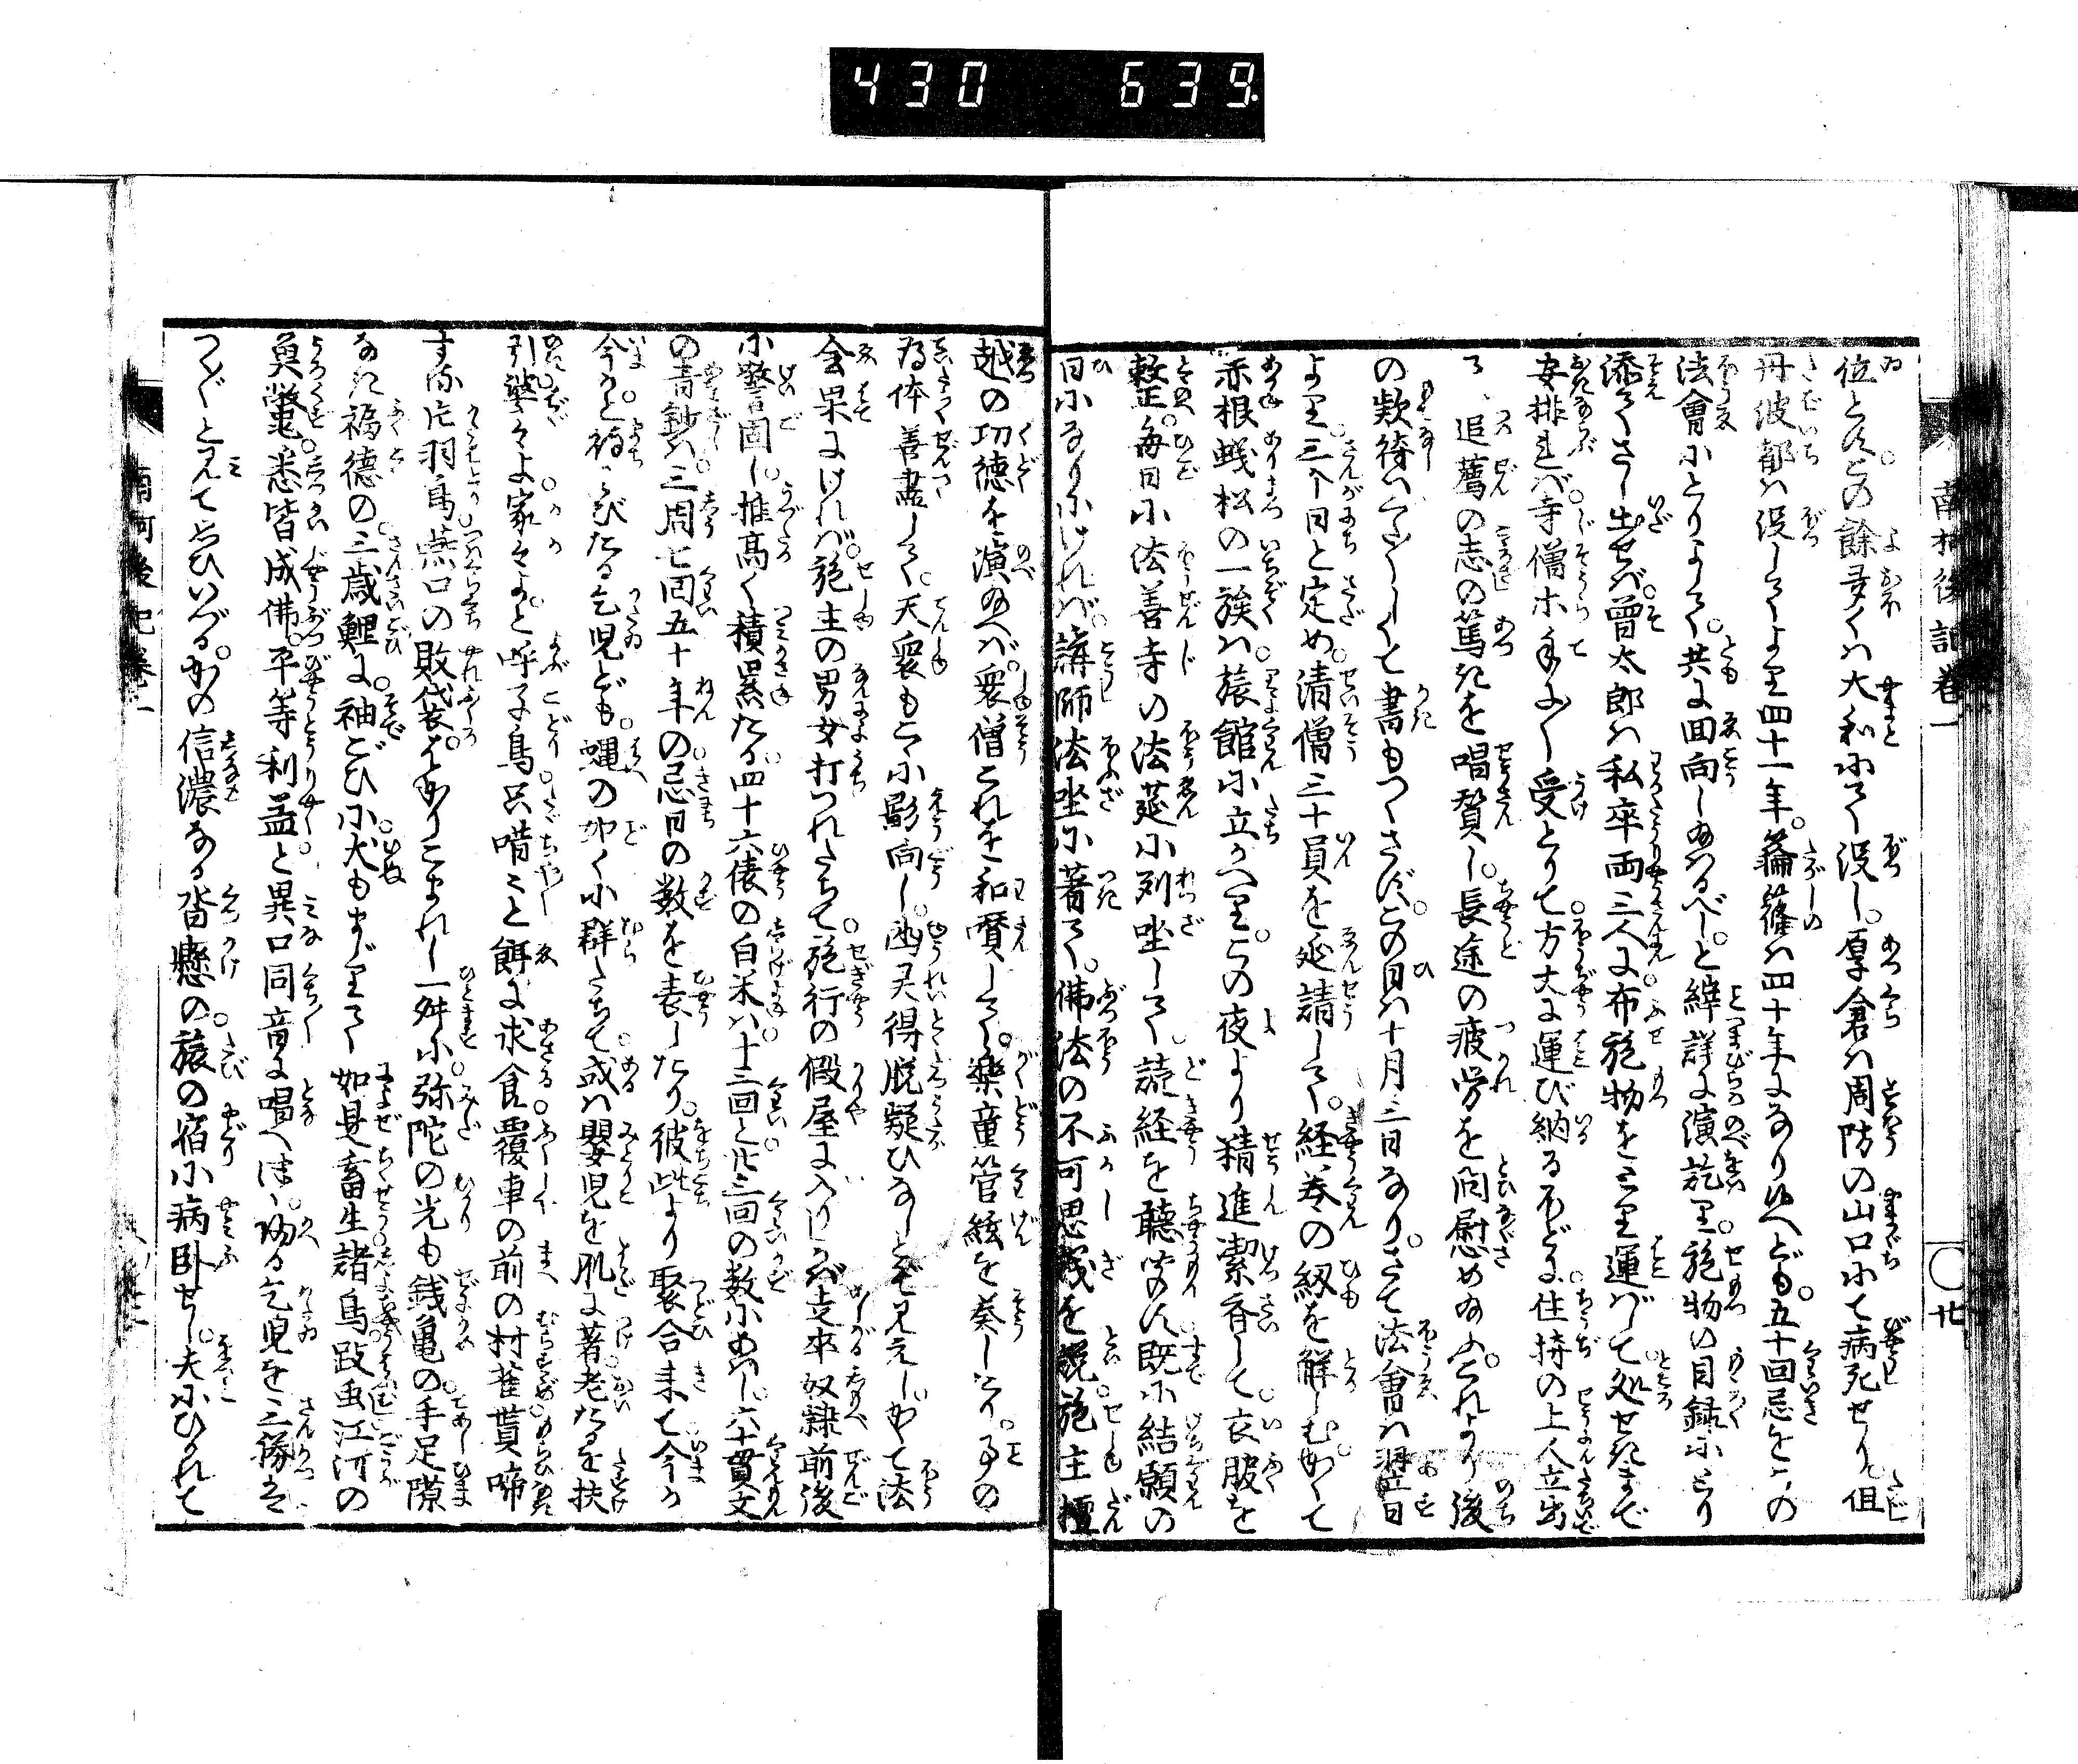 430 639
南柯後記巻一
〇廿
位とす。この餘多くハ大和にて没し。厚倉ハ周防の山口にて病死せり。但
丹波都ハ没してより四十一年。蘿篠ハ四十年になり候へども。五十回忌をこの
法會にとりよして。共に回向し給ふべし。と縡詳に演説里。施物の目録にとり
添てさし出せバ。曽太郎ハ私卒両三人に布施物をとり運バして。処せきまで
安排れバ。寺僧ホ手ふし受とりて方丈に運び納るほどに。住持の上人立出
て、追薦の志の篤きを唱賛し。長途の疲労を問慰め給ふ。これより後
の欵待ハくだくだしくて書もつくさず。この日ハ十月三日なり。さて法會ハ翌日
より三个日と定め。清僧三十員を延請して。経巻の紐を解しむ。かくて
赤根蟻松の一族ハ。旅館に立かへり。この夜より精進潔斎して。衣服を
整。毎日に法善寺の法莚に列坐して。読経を聴聞す。既に結願の
日になりにければ。講師法坐に著て。佛法の不可思議を説。施主檀
越の功徳を演給へバ。衆僧これを和讃して。樂童管絃を奏しけり。事の
為体善盡して。天衆もここに影向し。幽灵得脱疑ひなしとぞ見えし。かくて法
会果にければ。施主の男女打つれたちて。施行の假屋に入りしかバ。走卒奴隷前後
に警固し。堆高く積累たる。四十六俵の白米ハ。十三回と卅三回の数にあハし。六十貫文
の青鈔ハ。三周七回五十年の忌日の数を表したり。彼此より聚合来て今か
今かと待わびたる乞児ども。蝿の如く小群たちて。或ハ嬰児を肌に著。老たるを扶
引。婆々よ家々よ。と呼子鳥。只喈こと餌に求食。覆車の前の村雀。貰啼
する片羽鳥。燕口の敗袋。とかりこまれし一舛に。弥陀の光も銭亀の。手足隙
なき福徳の。三歳鯉に。袖ごひに。犬もまじりて。如是畜生諸鳥跂虫江河の
魚鼈。悉皆成佛。平等利益と異口同音に唱へけり。帰る乞児を三勝ハ
つくづくと見て思ひいづる。かの信濃なる沓懸の。旅の宿に病臥せし。夫にひかれて
南柯後記巻一